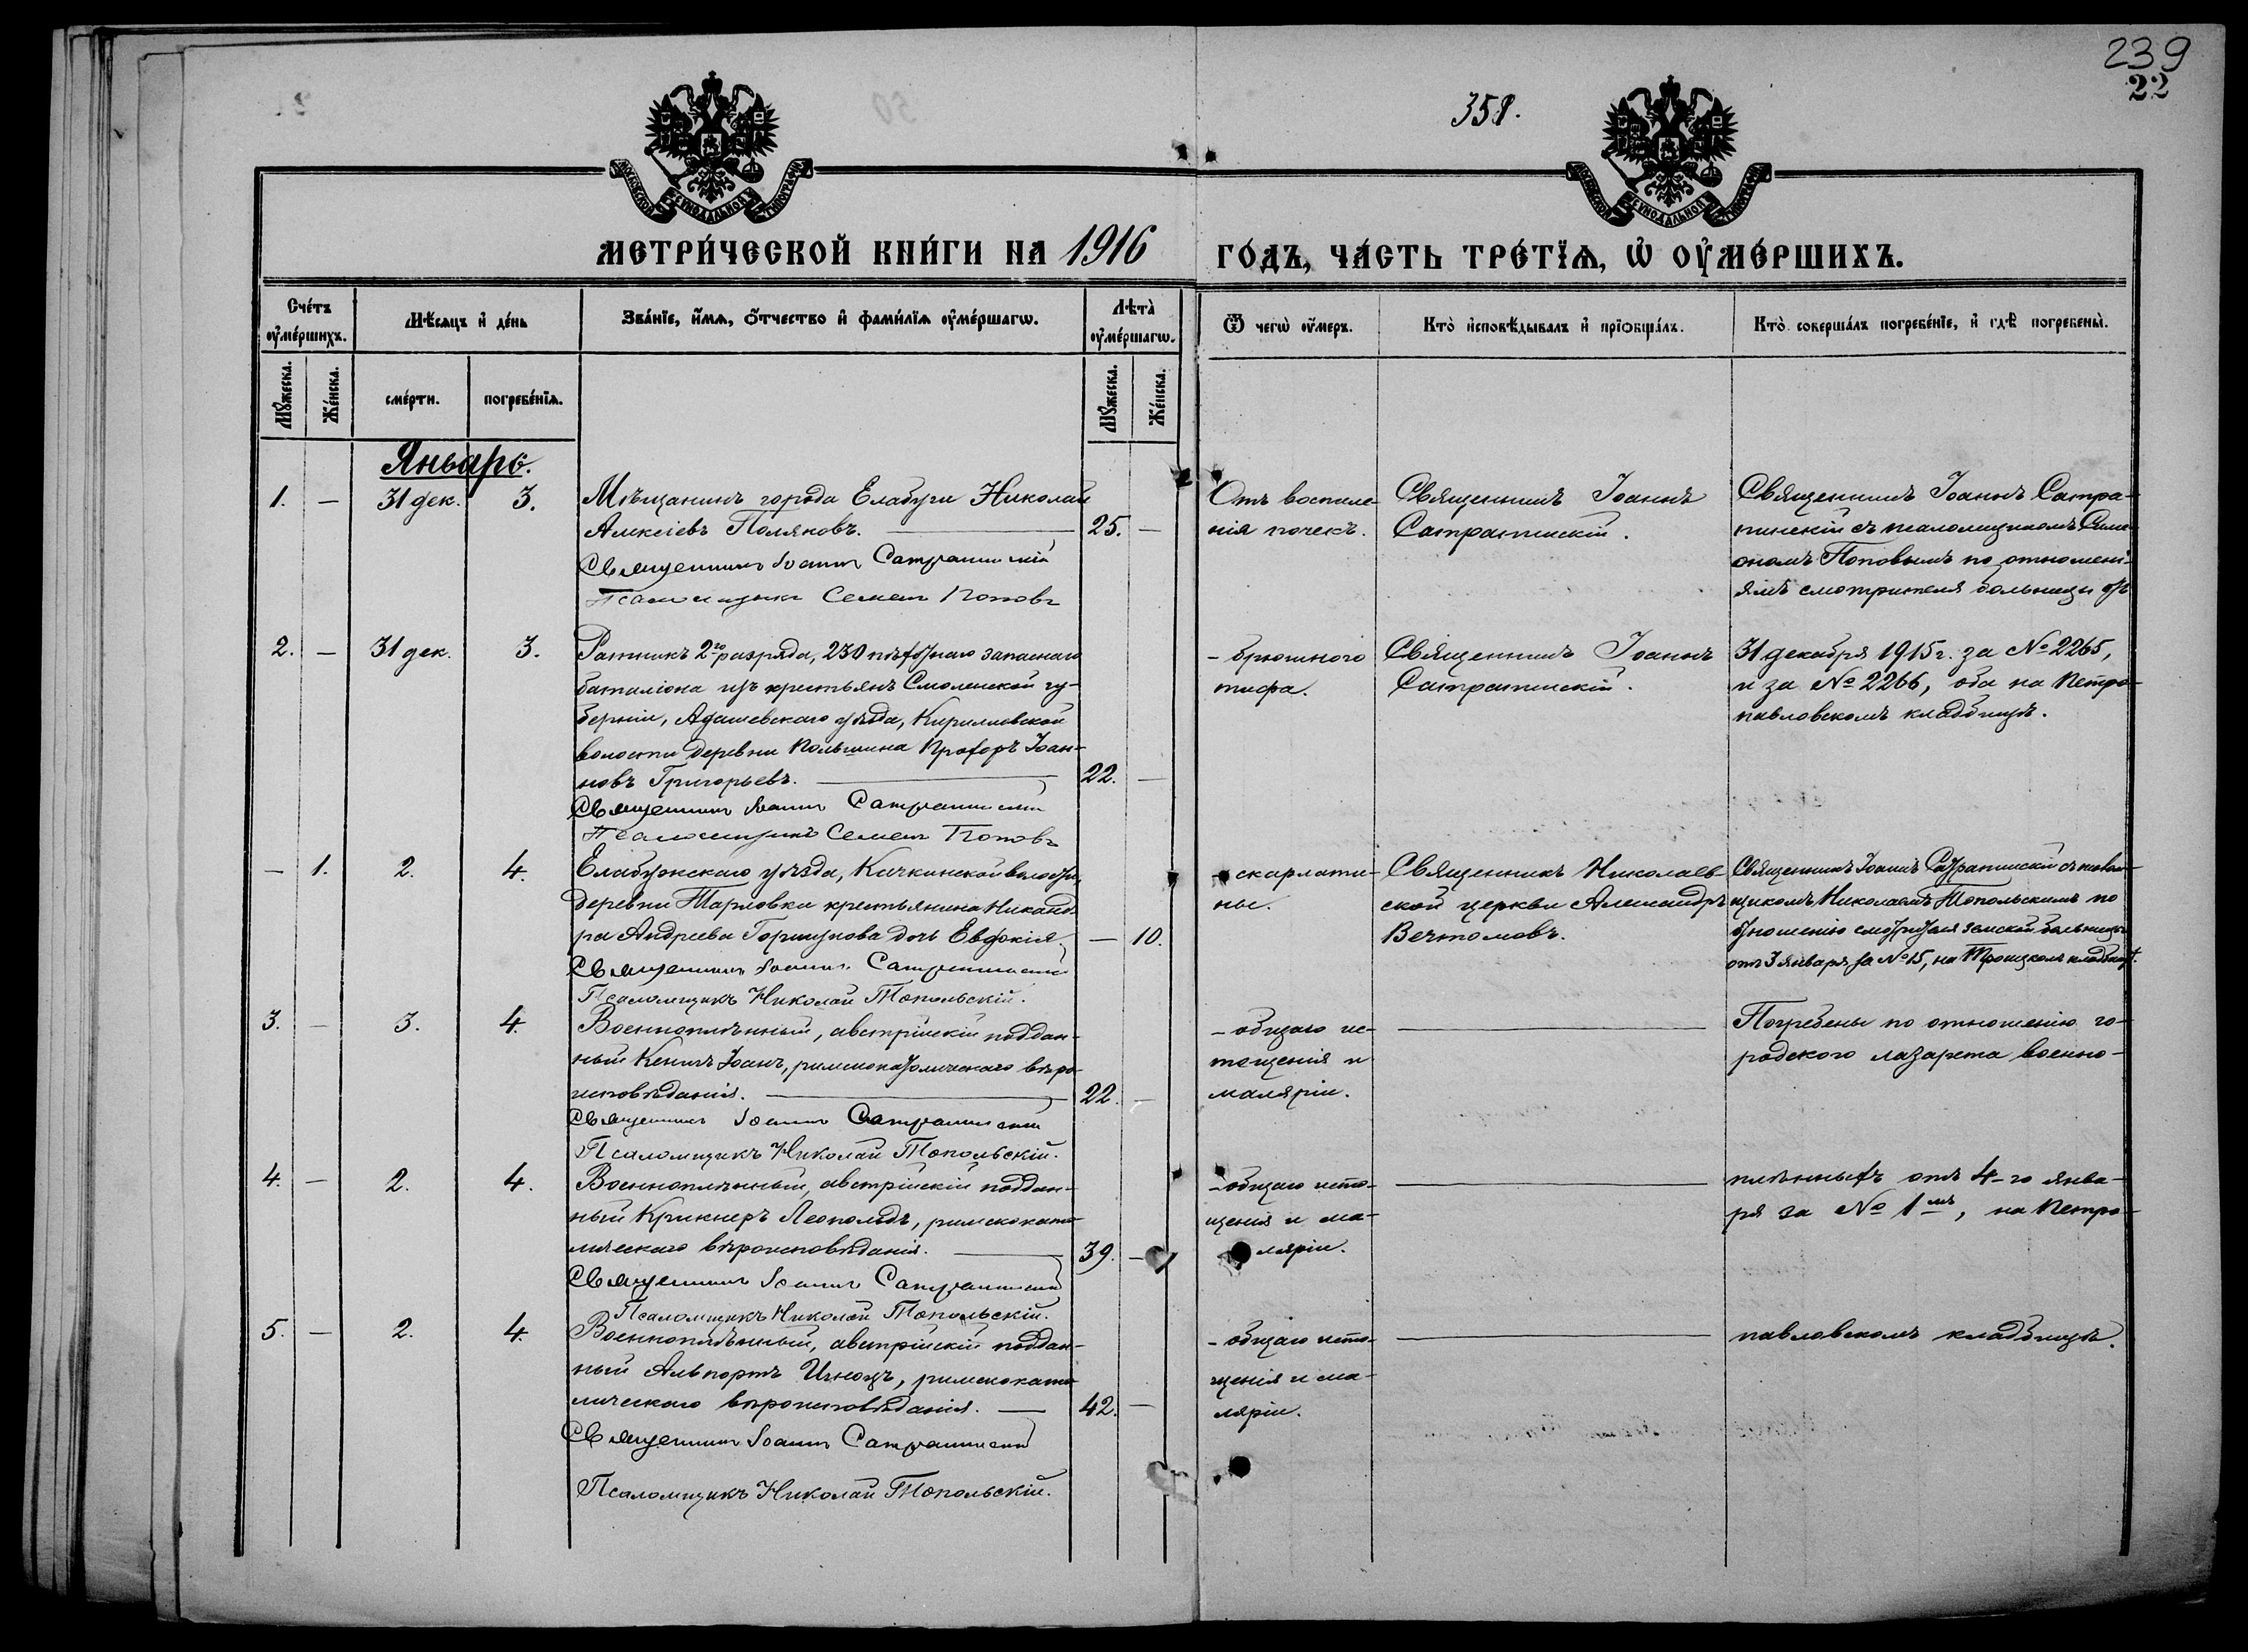 239
22
358.
МЕТРИ́ЧЕСКОЙ КНИ́ГИ НА 1916 ГО́ДЪ, ЧА́СТЬ ТРЕ́ТЇѦ, Ѡ҆ ОУ҆МЕ́РШИХЪ.
Сче́тъ оу҆ме́ршихъ.
Мѣ́сяцъ и҆ де́нь
Зва́нїе, и҆́мѧ, о҆́тчество и҆ фами́лїѧ оу҆ме́ршагѡ.
Лѣта̀ оу҆ме́ршагѡ.
Ѿ чегѡ̀ оу҆́меръ.
Кто̀ и҆сповѣ́дывалъ и҆ прїѻбща́лъ.
Кто̀ соверша́лъ погребе́нїе, и҆ гдѣ̀ погребены̀.
Мꙋ́жеска.
Же́нска.
сме́рти.
погребе́нїѧ.
Мꙋ́жеска.
Же́нска.
Январь.
1. — 31 дек. 3.
Мѣщанинъ города Елабуги Николай
Алексіевъ Поляковъ. 25. —
Священникъ Іоаннъ Сатрапинскій
Псаломщикъ Семенъ Поповъ
Отъ воспале-
нія почекъ.
Священникъ Іоаннъ
Сатрапинскій.
Священникъ Іоаннъ Сатра-
пинскій съ псаломщикомъ Симе-
ономъ Поповымъ по отношені-
ямъ смотрителя больницы отъ
2. — 31 дек. 3.
Ратникъ 2го разряда, 230 пѣхотнаго запаснаго
баталіона изъ крестьянъ Смоленской гу-
берніи, уѣзда, Кирилловской
волости деревни Польшина Прохоръ Іоан-
новъ Григорьевъ. 22. —
Священникъ Іоаннъ Сатрапинскій
Псаломщикъ Семенъ Поповъ
- брюшного
тифа.
Священникъ Іоаннъ
Сатрапинскій.
31 декабря 1915 г. за № 2265,
и за № 2266, оба на Петро-
павловскомъ кладбищѣ.
— 1. 2. 4.
Елабужскаго уѣзда, Качкинской волости,
деревни Тарловки крестьянина Никанд-
ра Андреева Горшунова дочь Евдокія. — 10.
Священникъ Іоаннъ Сатрапинскій
Псаломщикъ Николай Топольскій.
- скарлати-
ны.
Священникъ Николаев-
ской церкви Александръ
Вечтомовъ.
Священникъ Іоаннъ Сатрапинскій съ псалом-
щикомъ Николаемъ Топольскимъ по
отношенію смотрителя земской больницы
отъ 3 января за № 15, на Троицкомъ кладбищѣ.
3. — 3. 4.
Военноплѣнный, австрійскій поддан-
ный Іоанъ, римскокатолическаго вѣро-
исповѣданія. 22. —
Священникъ Іоаннъ Сатрапинскій
Псаломщикъ Николай Топольскій.
- общаго ис-
тощенія и
маляріи.
Погребены по отношенію го-
родского лазарета военно-
4. — 2. 4.
Военноплѣнный, австрійскій поддан-
ный Крикнеръ Леопольдъ, римскокато-
лическаго вѣроисповѣданія. 39. —
Священникъ Іоаннъ Сатрапинскій
Псаломщикъ Николай Топольскій.
- общаго исто-
щенія и ма-
ляріи.
плѣнныхъ отъ 4-го янва-
ря за № 1мъ, на Петро-
5. — 2. 4.
Военноплѣнный, австрійскій поддан-
ный Альпортъ Игнацъ, римскокато-
лическаго вѣроисповѣданія. 42. —
Священникъ Іоаннъ Сатрапинскій
Псаломщикъ Николай Топольскій.
- общаго исто-
щенія и ма-
ляріи.
павловскомъ кладбищѣ.